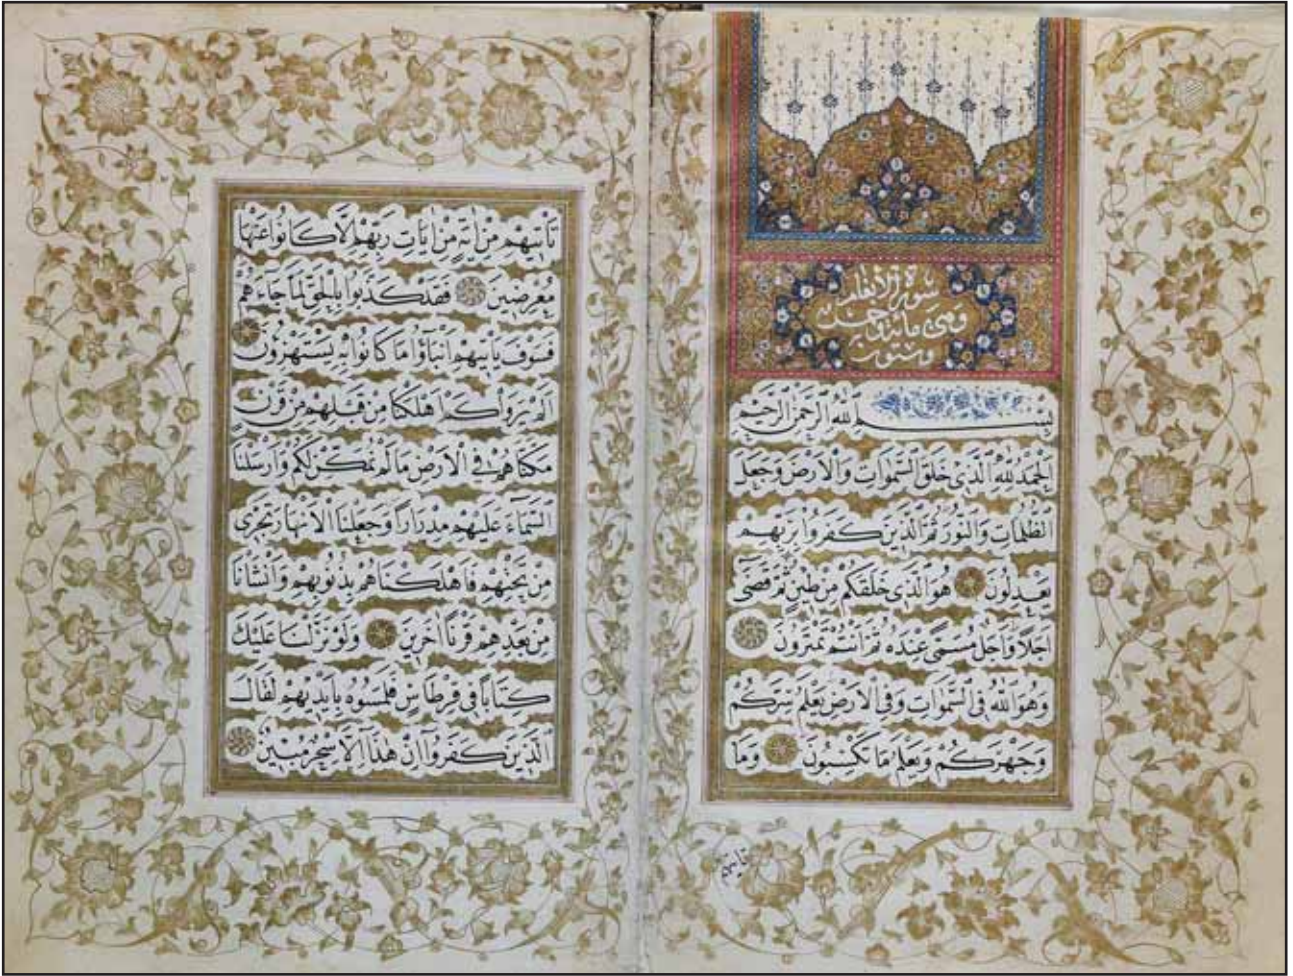 سورة الانعام
وهى مائة وخمس
وستون
بسم الله الرحمن الرحيم
الحمد لله الذى خلق السموات والارض وجعل
الظلمات والنور ثم الذين كفروا بربهم
يعدلون هو الذى خلقكم من طين ثم قضى
اجلا واجل مسمى عنده ثم انتم تمترون
وهو الله فى السموات وفى الارض يعلم سركم
وجهركم ويعلم ما تكسبون وما
تأتيهم
تأتيهم من اية من ايات ربهم الا كانوا عنها
معرضين فقد كذبوا بالحق لما جاءهم
فسوف يأتيهم انبآؤا ما كانوا به يستهزؤن
الم يروا كم اهلكنا من قبلهم من قرن
مكناهم فى الارض ما لم نمكن لكم وارسلنا
السمآء عليهم مدرارا وجعلنا الانهار تجرى
من تحتهم فاهلكناهم بذنوبهم وانشأنا
من بعدهم قرنا اخرين ولو نزلنا عليك
كتابا فى قرطاس فلمسوه بايديهم لقال
الذين كفروآ ان هذآ الا سحر مبين